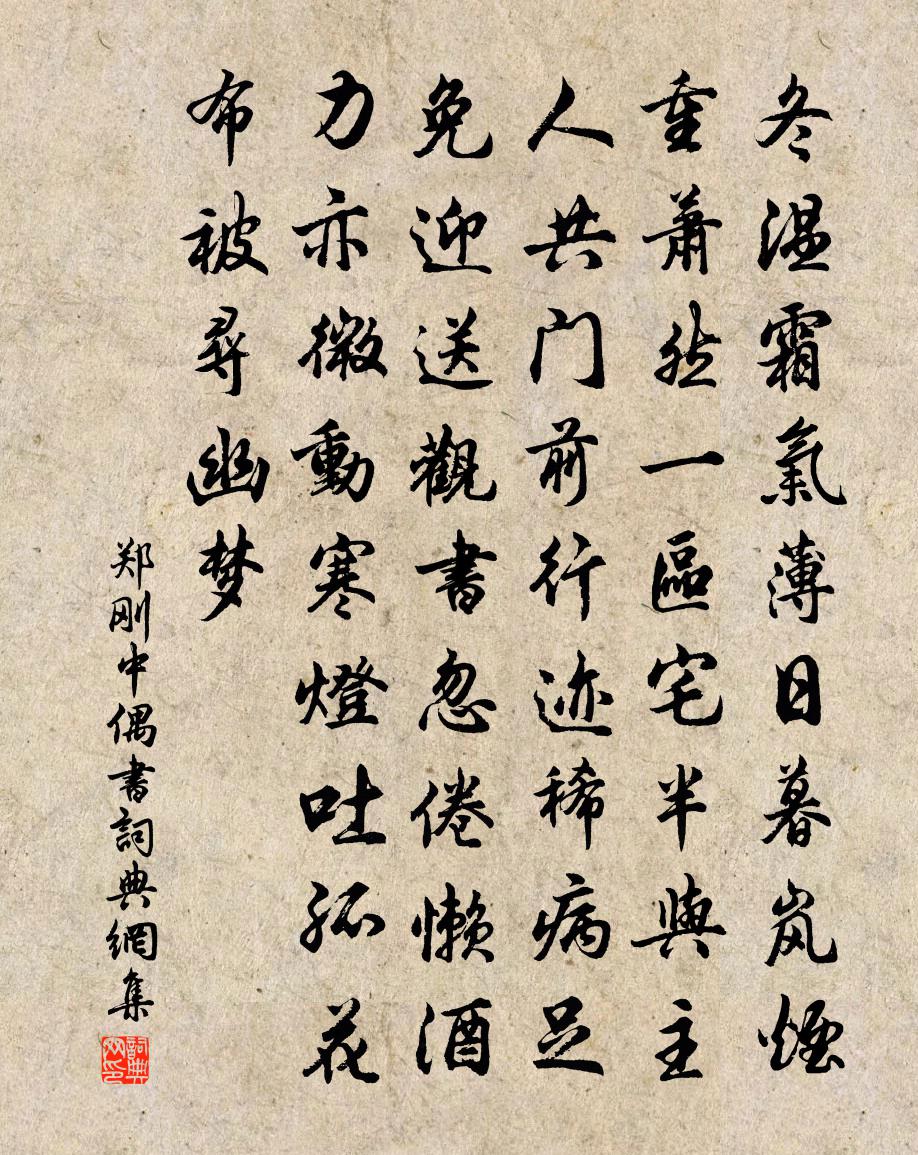 冬温霜氣薄日暮岚煙
重萧然一區宅半與主
人共门前行迹稀病足
免迎送觀書忽倦懒酒
力亦微動寒燈吐孤花
布被尋幽梦
郑刚中偶書詞典網集
詞典网印